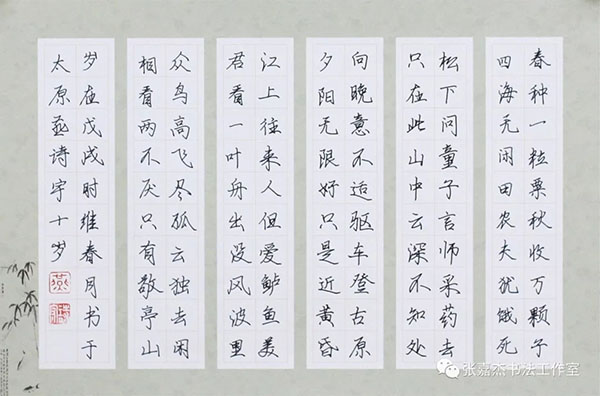 春种一粒粟秋收万颗子
四海无闲田农夫犹饿死
松下问童子言师采药去
只在此山中云深不知处
向晚意不适驱车登古原
夕阳无限好只是近黄昏
江上往来人但爱鲈鱼美
君看一叶舟出没风波里
众鸟高飞尽孤云独去闲
相看两不厌只有敬亭山
岁在戊戌时维春月书于
太原燕诗宇十岁
燕
张嘉杰书法工作室